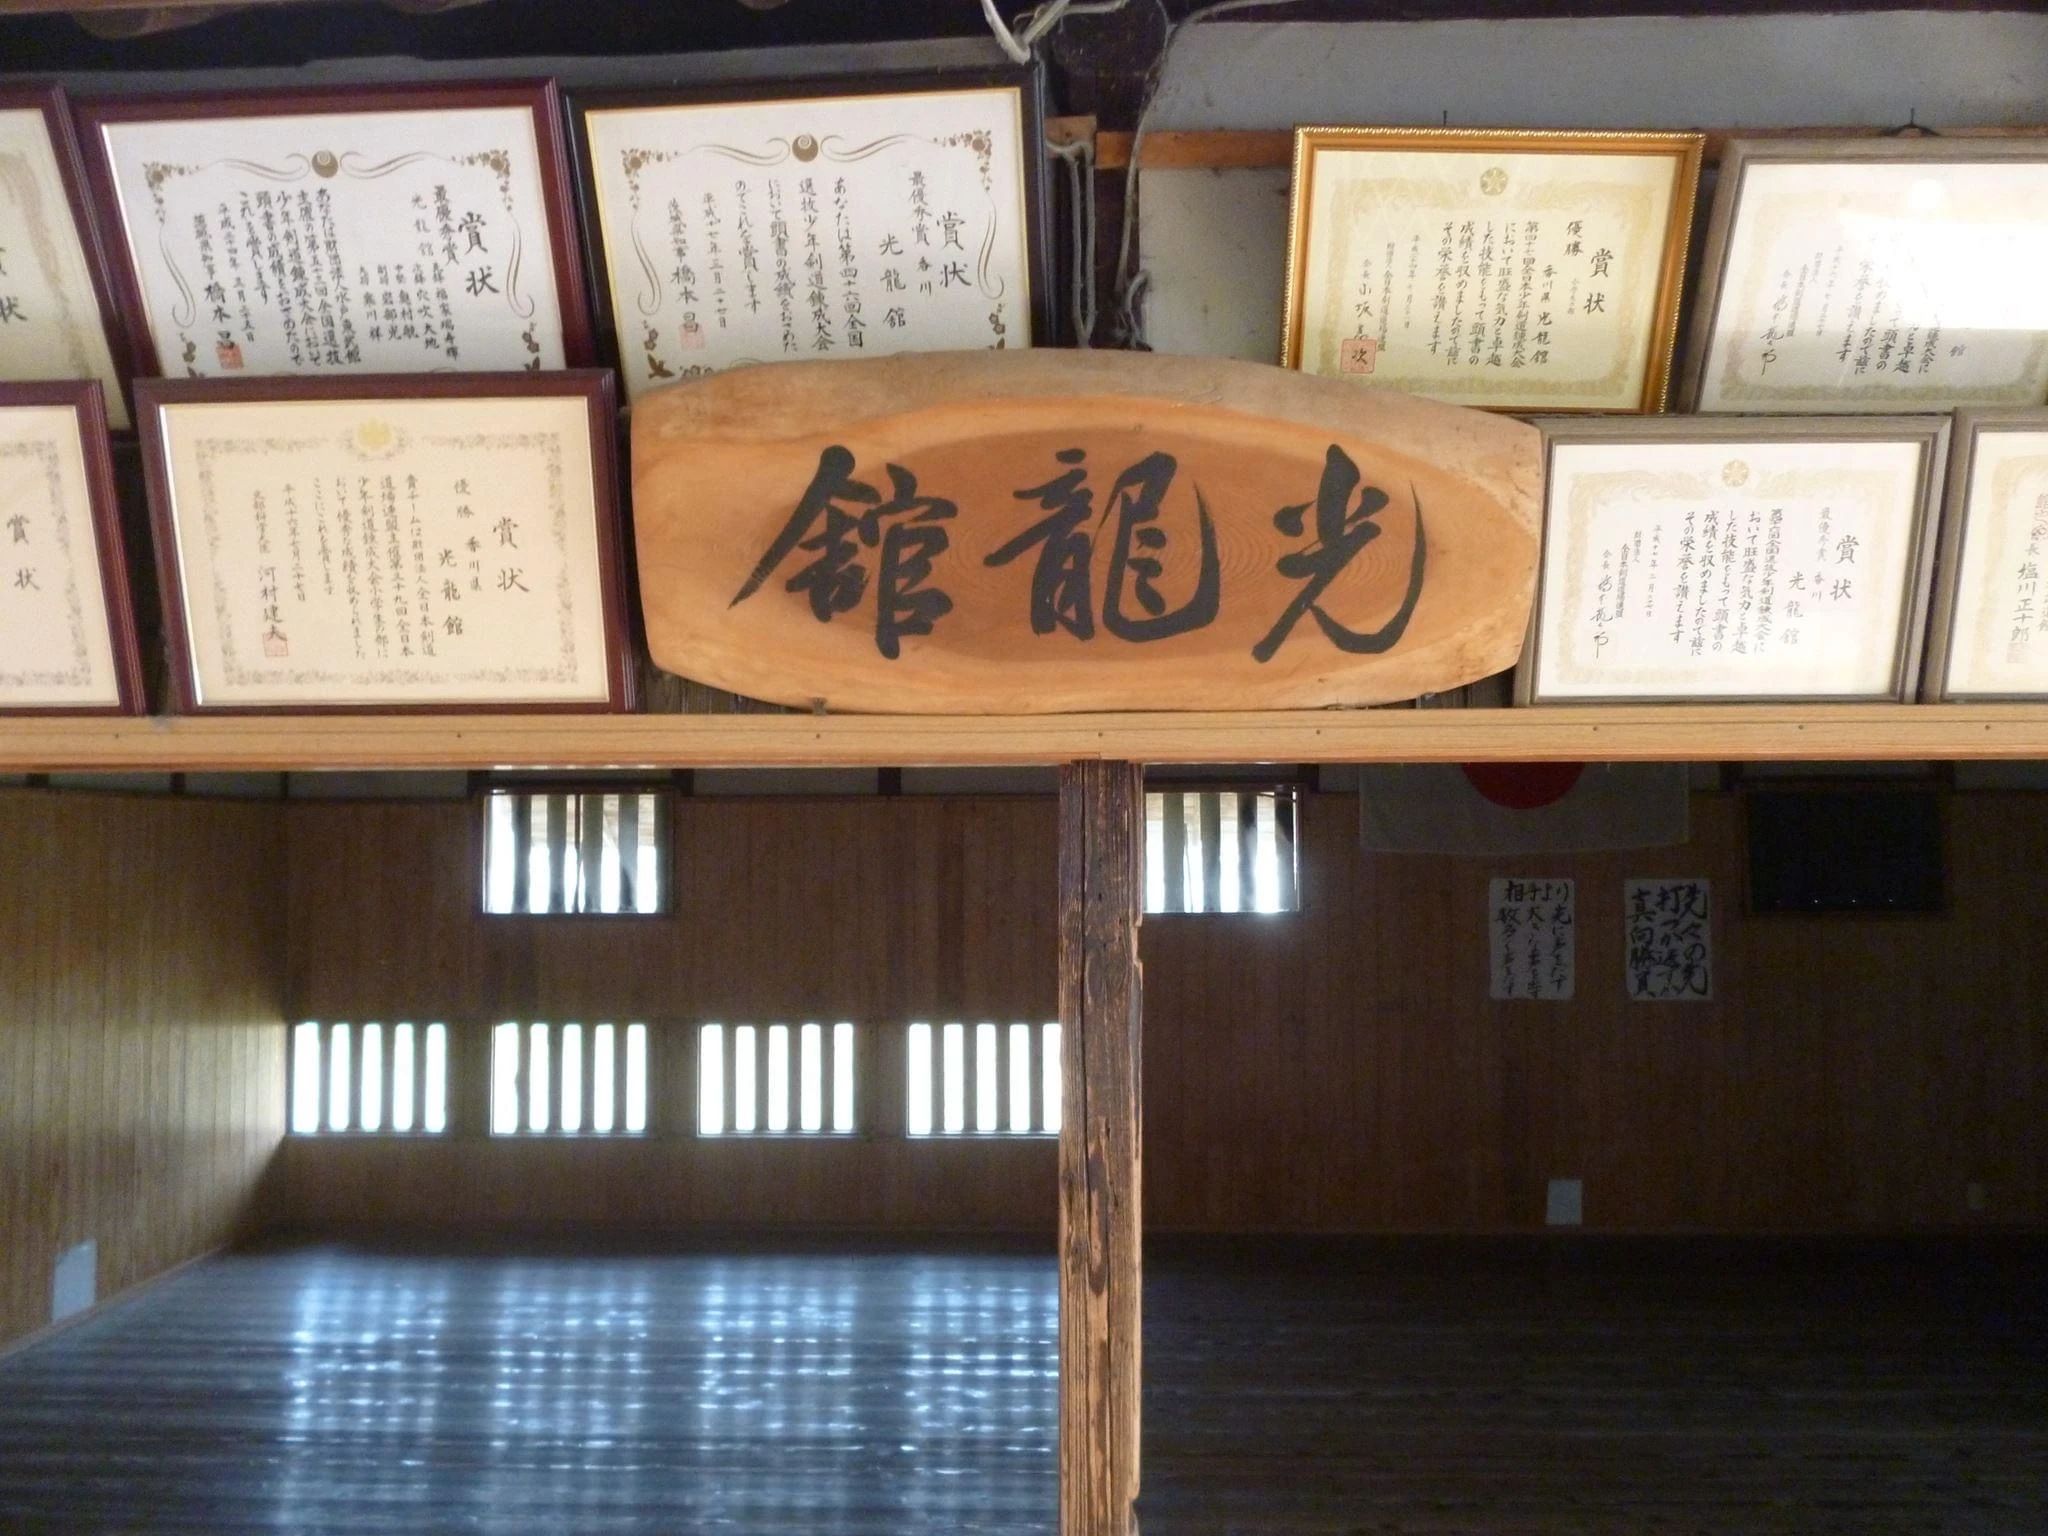 光龍館
賞状
最優秀賞
光龍館
あなたは財団法人水戸東武館
主催の第五十三回全国選抜
少年剣道錬成大会において
頭書の成績をおさめたので
これを賞します
平成二十四年三月二十五日
茨城県知事 橋本昌
賞状
最優秀賞 香川
光龍館
あなたは第四十六回全国
選抜少年剣道錬成大会
において頭書の成績をおさめた
のでこれを賞します
平成十七年三月二十七日
茨城県知事 橋本昌
賞状
優勝
香川県 光龍館
第四十七回全日本少年剣道錬成大会
において旺盛な気力と卓越
した技能をもって頭書の
成績を収めましたので茲に
その栄誉を讃えます
財団法人 全日本剣道道場連盟
会長
賞状
優勝 香川県
光龍館
貴チームは財団法人全日本剣道
道場連盟主催第三十九回全日本
少年剣道錬成大会小学生の部に
おいて優秀な成績を収められました
ここにこれを賞します
平成十六年七月二十七日
文部科学大臣 河村建夫
賞状
最優秀賞 香川
光龍館
おいて旺盛な気力と卓越
した技能をもって頭書の
成績を収めましたので茲に
その栄誉を讃えます
財団法人
全日本剣道道場連盟
会長
賞状
状
館
会長 塩川正十郎
先々の先
打つか返すか
真向勝負
相手より先に